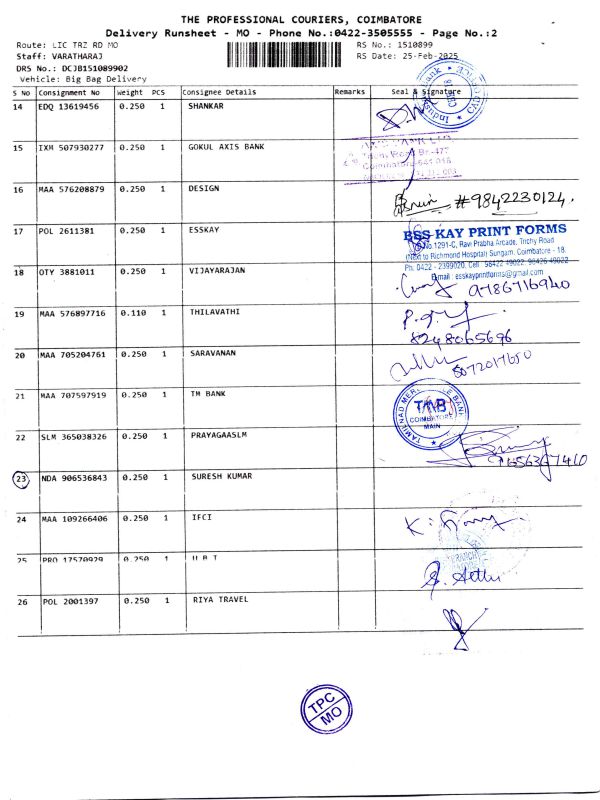 THE PROFESSIONAL COURIERS, COIMBATORE
Delivery Runsheet - MO - Phone No.:0422-3505555 - Page No.:2
Route: LIC TRZ RD MO RS No.: 1510899
Staff: VARATHARAJ RS Date: 25-Feb-2025
DRS No.: DCJB151089902
Vehicle: Big Bag Delivery
S No Consignment No Weight PCS Consignee Details Remarks Seal & Signature
14 EDQ 13619456 0.250 1 SHANKAR
15 IXM 507930277 0.250 1 GOKUL AXIS BANK
16 MAA 576208879 0.250 1 DESIGN
#9842230124.
17 POL 2611381 0.250 1 ESSKAY
ESS KAY PRINT FORMS
No.1291-C, Ravi Prabha Arcade, Trichy Road
(Next to Richmond Hospital) Sungam, Coimbatore - 18.
Ph: 0422 - 2399020, Cell: 98422 49022, 98426 49022
Email: esskayprintforms@gmail.com
18 OTY 3881011 0.250 1 VIJAYARAJAN
9786716940
19 MAA 576897716 0.110 1 THILAVATHI
8248065696
20 MAA 705204761 0.250 1 SARAVANAN
21 MAA 707597919 0.250 1 TM BANK
TAMILNAD MERCANTILE BANK
TMB
COIMBATORE
MAIN
22 SLM 365038326 0.250 1 PRAYAGAASLM
23 NDA 906536843 0.250 1 SURESH KUMAR
24 MAA 109266406 0.250 1 IFCI
25 PRO 17570929 0.250 1 U B T
26 POL 2001397 0.250 1 RIYA TRAVEL
TPC
MO